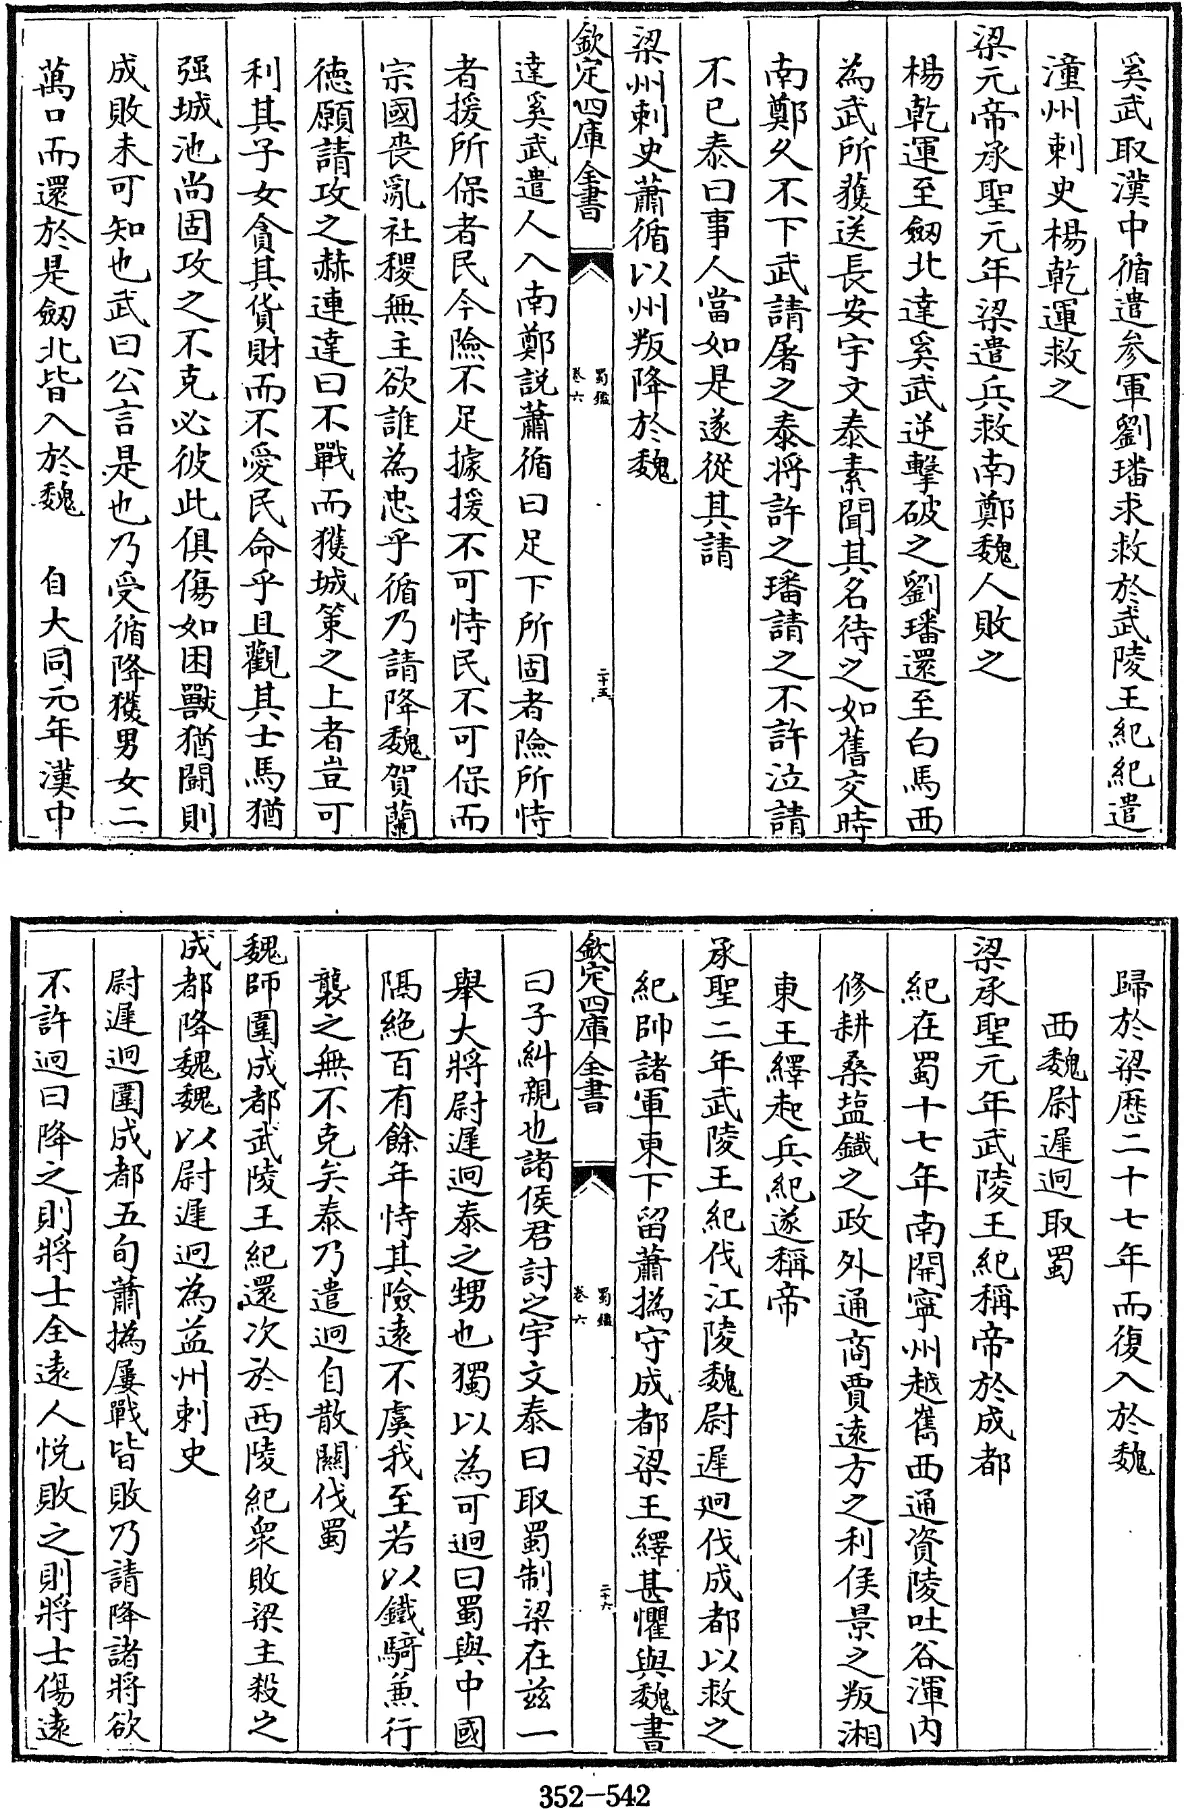 奚武取漢中循遣參軍劉璠求救於武陵王紀紀遣
潼州刺史楊乾運救之
梁元帝承聖元年梁遣兵救南鄭魏人敗之
楊乾運至劔北達奚武逆擊破之劉璠還至白馬西
為武所獲送長安宇文泰素聞其名待之如舊交時
南鄭久不下武請屠之泰将許之璠請之不許泣請
不已泰曰事人當如是遂從其請
梁州刺史蕭循以州叛降於魏
欽定四庫全書
蜀鑑
卷六
二十五
達奚武遣人入南鄭説蕭循曰足下所固者險所恃
者援所保者民今險不足據援不可恃民不可保而
宗國喪亂社稷無主欲誰為忠乎循乃請降魏賀蘭
德願請攻之赫連達曰不戰而獲城策之上者豈可
利其子女貪其貨財而不愛民命乎且觀其士馬猶
强城池尚固攻之不克必彼此俱傷如困獸猶鬭則
成敗未可知也武曰公言是也乃受循降獲男女二
萬口而還於是劔北皆入於魏　自大同元年漢中
歸於梁歴二十七年而復入於魏
西魏尉遲迥取蜀
梁承聖元年武陵王紀稱帝於成都
紀在蜀十七年南開寧州越嶲西通資陵吐谷渾内
修耕桑塩鐵之政外通商賈遠方之利侯景之叛湘
東王繹起兵紀遂稱帝
承聖二年武陵王紀伐江陵魏尉遲迥伐成都以救之
紀帥諸軍東下留蕭撝守成都梁王繹甚懼與魏書
欽定四庫全書
蜀鑑
卷六
二十六
曰子糾親也諸侯君討之宇文泰曰取蜀制梁在兹一
舉大將尉遲迥泰之甥也獨以為可迥曰蜀與中國
隔絶百有餘年恃其險遠不虞我至若以鐵騎兼行
襲之無不克矣泰乃遣迥自散關伐蜀
魏師圍成都武陵王紀還次於西陵紀衆敗梁主殺之
成都降魏魏以尉遲迥為益州刺史
尉遲迥圍成都五旬蕭撝屢戰皆敗乃請降諸將欲
不許迥曰降之則將士全遠人悅敗之則將士傷遠
352-542